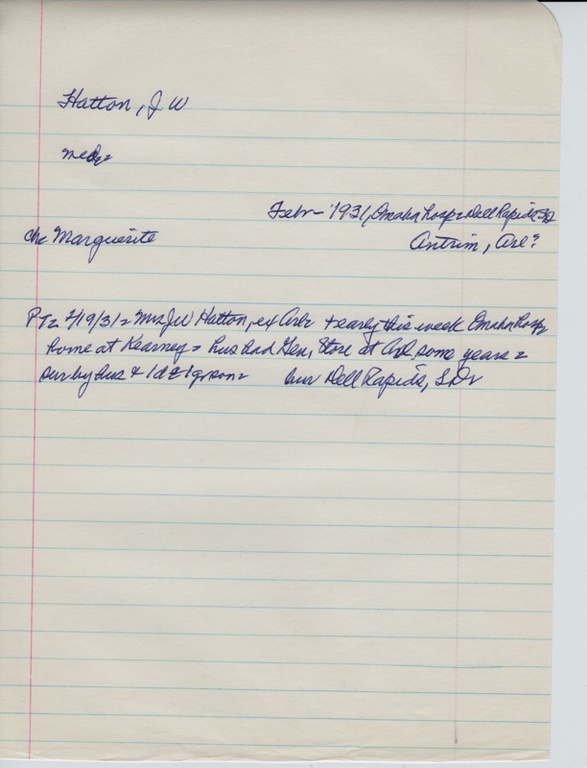 Hatton, J W
Febr - 1931, Omaha hosp = Dell Rapids SD
ch = Marguerite
Antrim, Ire?
PT = 2/19/31 = Mrs JW Hatton, ex Arb = + early this week Omaha hosp =
home at Kearney = hus had Gen, Store at some years =
sur by hus & 1 d & 1 grson = bur Dell Rapids, S D =